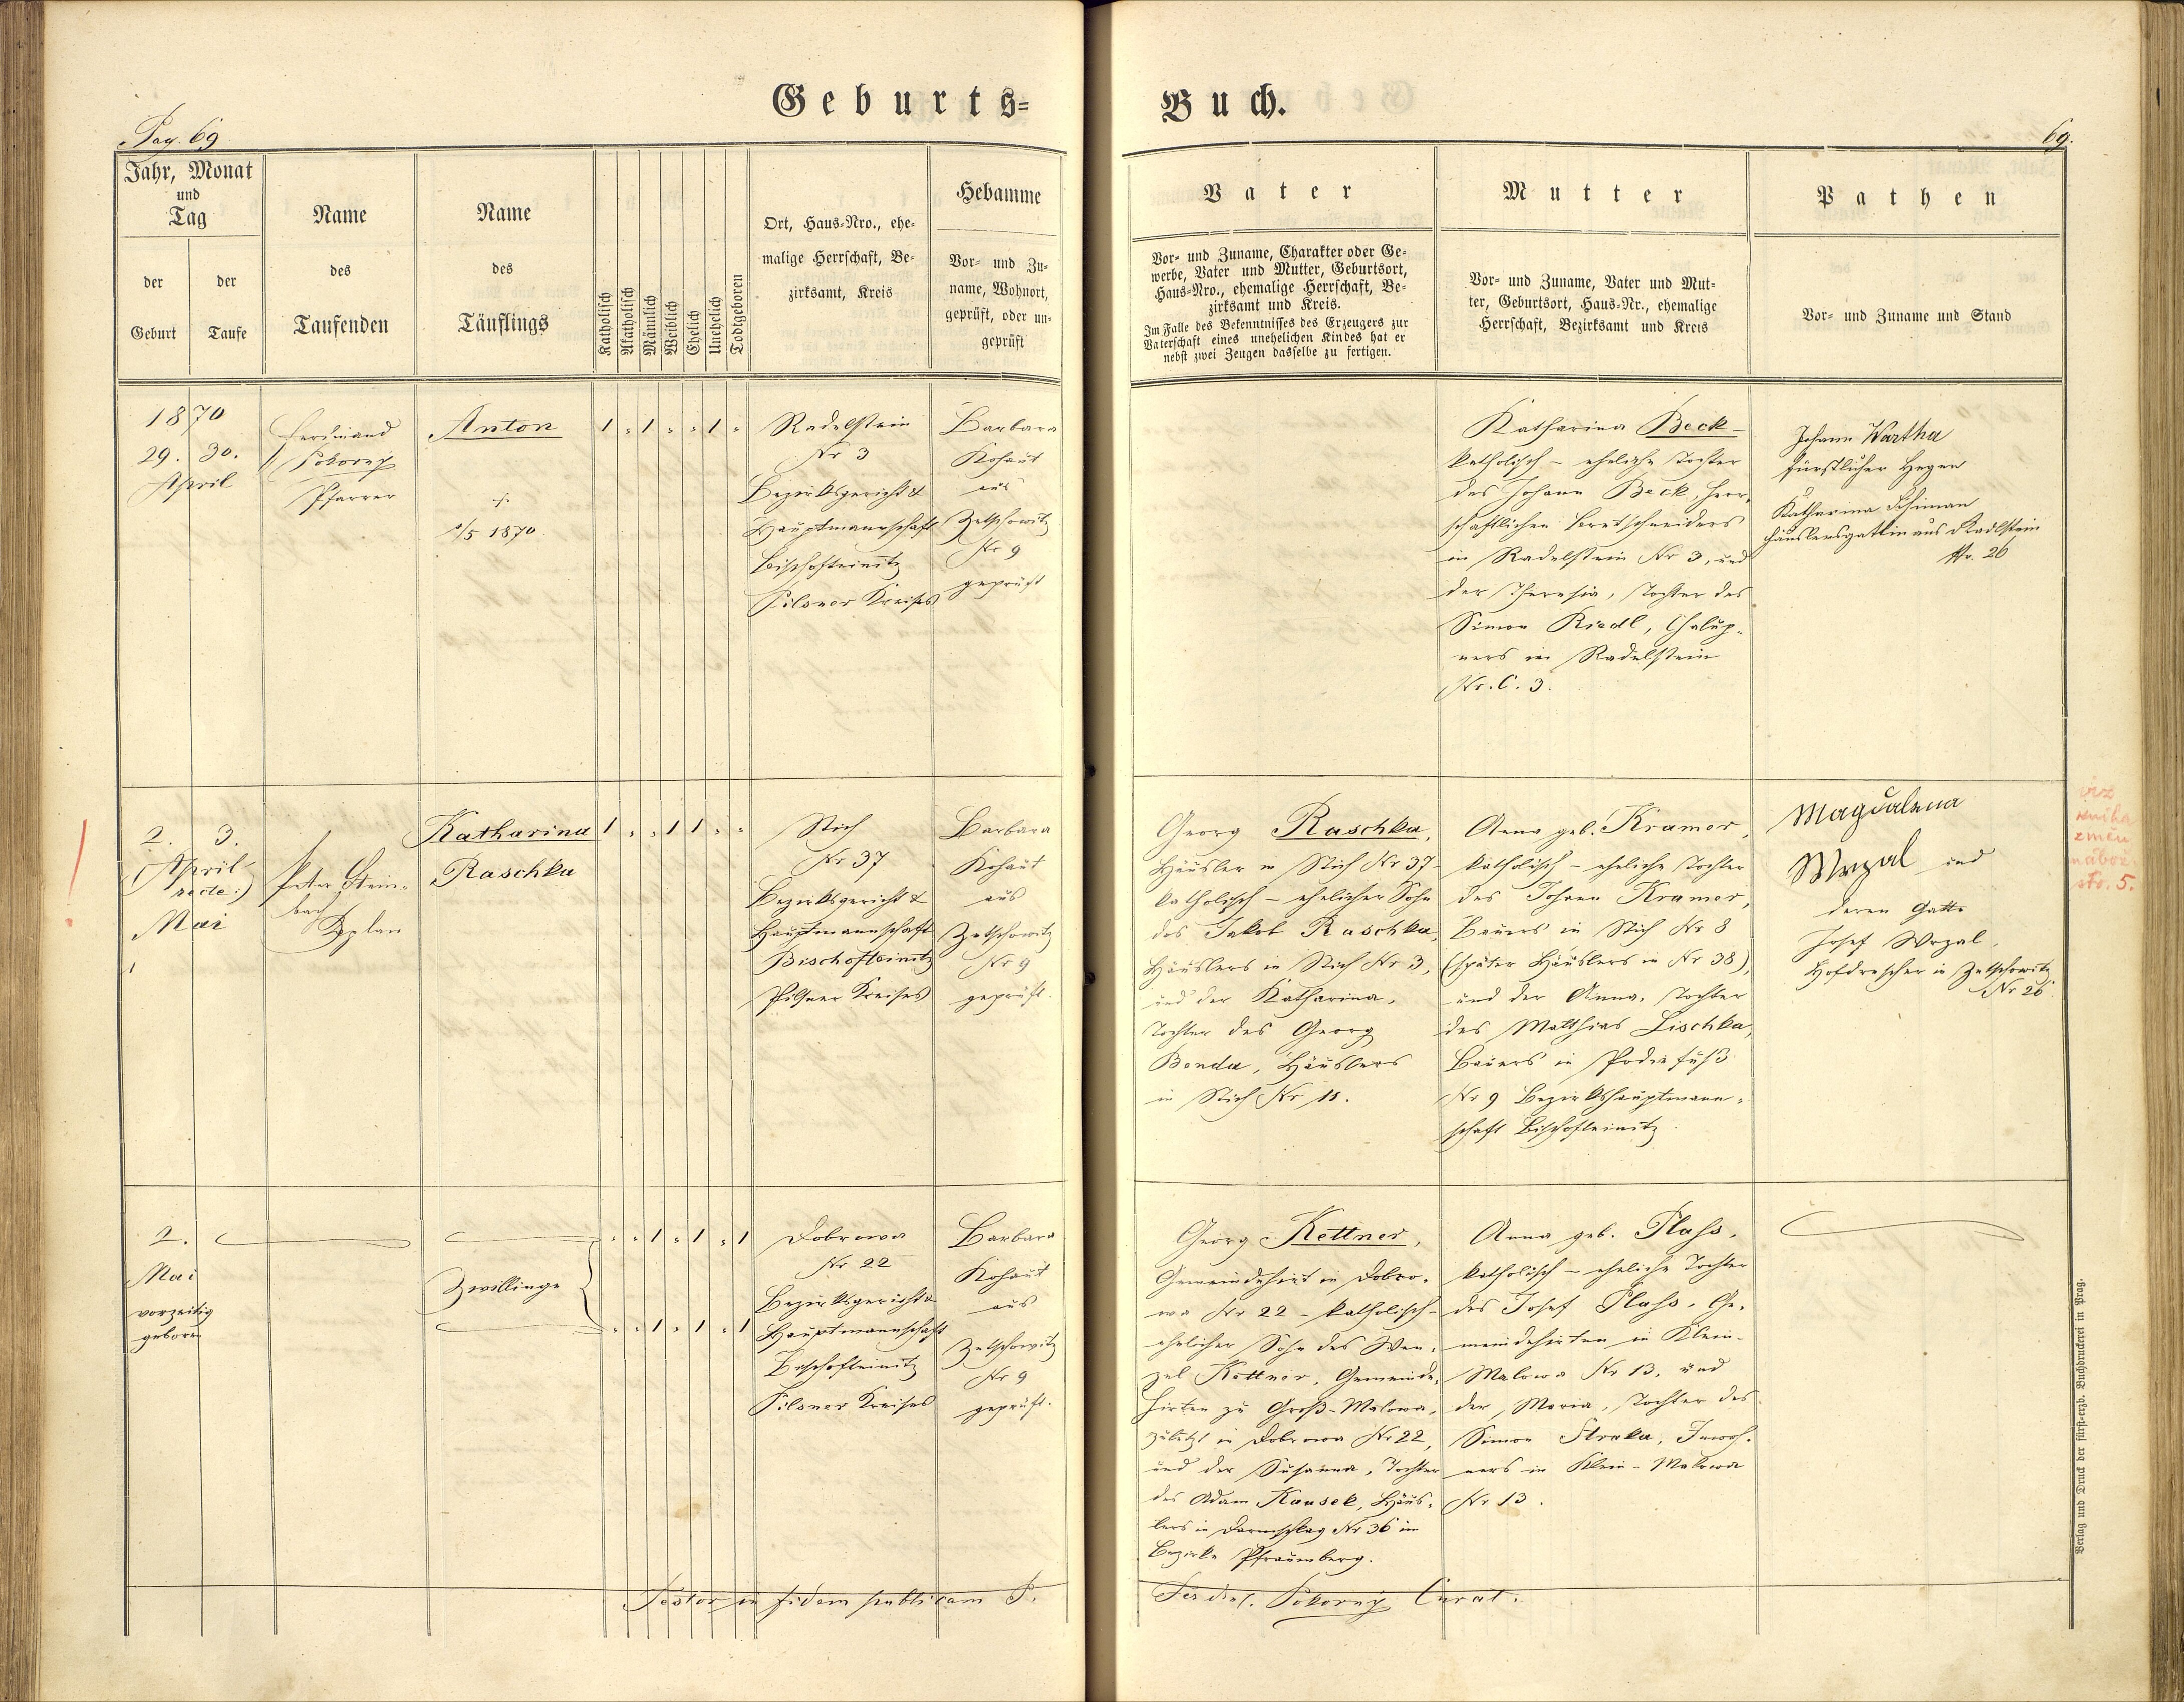 Geburts=
Buch.
Pag. 69
69.
Jahr, Monat
und
Tag
der
Geburt
der
Taufe
Name
des
Taufenden
Name
des
Täuflings
Katholisch
Akatholisch
Männlich
Weiblich
Ehelich
Unehelich
Todtgeboren
Ort, Haus-Nro., ehe-
malige Herrschaft, Be-
zirksamt, Kreis
Hebamme
Vor- und Zu-
name, Wohnort,
geprüft, oder un-
geprüft
Vater
Vor- und Zuname, Charakter oder Ge-
werbe, Vater und Mutter, Geburtsort,
Haus-Nro., ehemalige Herrschaft, Be-
zirksamt und Kreis.
Im Falle des Bekenntnisses des Erzeugers zur
Vaterschaft eines unehelichen Kindes hat er
nebst zwei Zeugen dasselbe zu fertigen.
Mutter
Vor- und Zuname, Vater und Mut-
ter, Geburtsort, Haus-Nr., ehemalige
Herrschaft, Bezirksamt und Kreis
Pathen
Vor- und Zuname und Stand
1870
29. 30.
April
Ferdinand
Pokorny
Pfarrer
Anton
/5 1870
1 " 1 " " 1 "
Radelstein
Nr 3
Bezirksgericht &
Hauptmannschaft
Bischofteinitz
Pilsner Kreises
Barbara
Kohaut
aus
Zetschowitz
Nr 9
geprüft
Katharina Beck –
katholisch – eheliche Tochter
des Johann Beck, herr-
schaftlichen Bretschneiders
in Radelstein Nr 3, und
der Theresia, Tochter des
Simon Riedl, Chalup-
ners in Radelstein
Nr. C. 3.
Johann Wartha
fürstlicher Heger
Katharina Schiman
Häuslersgattin aus Radlstein
Nr. 26
2. 3.
April
recte:)
Mai
Peter Stein-
bach
Kaplan
Katharina
Raschka
1 " " 1 1 " "
Stich
Nr 37
Bezirksgericht &
Hauptmannschaft
Bischofteinitz
Pilsner Kreises
Barbara
Kohaut
aus
Zetschowitz
Nr 9
geprüft.
Georg Raschka,
Häusler in Stich Nr 37 –
katholisch – ehelicher Sohn
des Jakob Raschka,
Häuslers in Stich Nr 3,
und der Katharina,
Tochter des Georg
Bonda, Häuslers
in Stich Nr 18.
Anna geb. Kramer,
katholisch – eheliche Tochter
des Johann Kramer,
Bauers in Stich Nr 8
(später Häuslers in Nr 38),
und der Anna, Tochter
des Matthias Lischka,
Bauers in Podiefuß
Nr 9 Bezirkshauptmann-
schaft Bischofteinitz.
Magdalena
Wrzal und
deren Gatte
Josef Wrzal,
Hofdrescher in Zetschowitz
Nr 26
viz
kniha
změn
nábož.
str. 5.
2.
Mai
vorzeitig
geboren
Zwillinge
" " 1 " 1 " 1
" " 1 " 1 " 1
Dobrowa
Nr 22
Bezirksgericht &
Hauptmannschaft
Bischofteinitz
Pilsner Kreises
Barbara
Kohaut
aus
Zetschowitz
Nr 9
geprüft.
Georg Kettner,
Gemeindehirt in Dobro-
wa Nr 22 – katholisch –
ehelicher Sohn des Wen-
zel Kettner, Gemeinde-
hirten zu Groß-Malowa,
zuletzt in Dobrowa Nr 22,
und der Susanna, Tochter
des Adam Kausek, Häus-
lers in Darmschlag Nr 36 im
Bezirke Pfraumberg.
Anna geb. Plass,
katholisch – eheliche Tochter
des Josef Plass, Ge-
meindehirten in Klein-
Malowa Nr 13, und
der Maria, Tochter des
Simon Straka, Inwoh-
ners in Klein-Malowa
Nr 13.
Testor in fidem publicam P.
Ferdin. Pokorny Curat.
Verlag und Druck der fürst-erzb. Buchdruckerei in Prag.